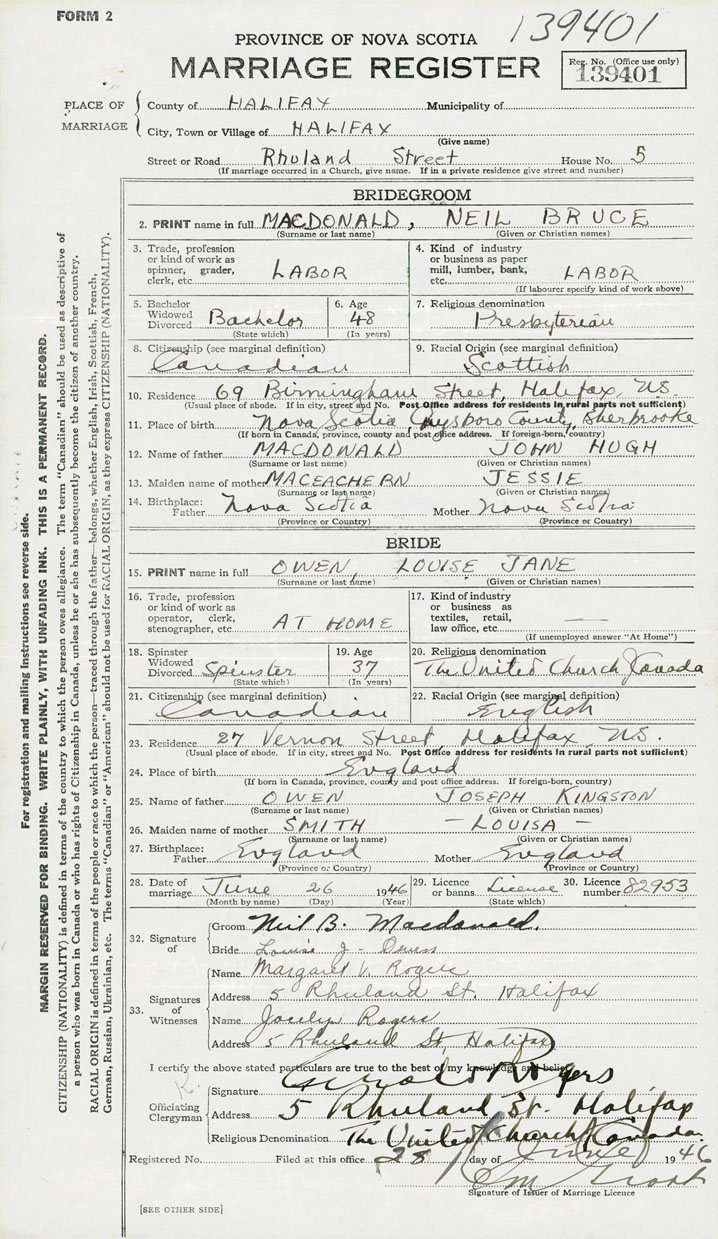 FORM 2
139401
PROVINCE OF NOVA SCOTIA
MARRIAGE REGISTER
Reg. No. (Office use only)
139401
PLACE OF MARRIAGE
County of HALIFAX Municipality of
City, Town or Village of HALIFAX
(Give name)
Street or Road Rhuland Street House No. 5
(If marriage occurred in a Church, give name. If in a private residence give street and number)
BRIDEGROOM
2. PRINT name in full MACDONALD, NEIL BRUCE
(Surname or last name) (Given or Christian names)
3. Trade, profession or kind of work as spinner, grader, clerk, etc. LABOR
4. Kind of industry or business as paper mill, lumber, bank, etc. LABOR
(If labourer specify kind of work above)
5. Bachelor Widowed Divorced Bachelor
(State which)
6. Age 48
(In years)
7. Religious denomination
Presbyterian
8. Citizenship (see marginal definition)
Canadian
9. Racial Origin (see marginal definition)
Scottish
10. Residence 69 Birmingham Street, Halifax, N.S.
(Usual place of abode. If in city, street and No. Post Office address for residents in rural parts not sufficient)
11. Place of birth Nova Scotia, Guysboro County, Sherbrooke
(If born in Canada, province, county and post office address. If foreign-born, country)
12. Name of father MACDONALD JOHN HUGH
(Surname or last name) (Given or Christian names)
13. Maiden name of mother MACEACHERN JESSIE
(Surname or last name) (Given or Christian names)
14. Birthplace: Father Nova Scotia Mother Nova Scotia
(Province or Country) (Province or Country)
BRIDE
15. PRINT name in full OWEN, LOUISE JANE
(Surname or last name) (Given or Christian names)
16. Trade, profession or kind of work as operator, clerk, stenographer, etc. AT HOME
17. Kind of industry or business as textiles, retail, law office, etc. —
(If unemployed answer "At Home")
18. Spinster Widowed Divorced Spinster
(State which)
19. Age 37
(In years)
20. Religious denomination
The United Church of Canada
21. Citizenship (see marginal definition)
Canadian
22. Racial Origin (see marginal definition)
English
23. Residence 27 Vernon Street, Halifax, N.S.
(Usual place of abode. If in city, street and No. Post Office address for residents in rural parts not sufficient)
24. Place of birth England
(If born in Canada, province, county and post office address. If foreign-born, country)
25. Name of father OWEN JOSEPH KINGSTON
(Surname or last name) (Given or Christian names)
26. Maiden name of mother SMITH - LOUISA -
(Surname or last name) (Given or Christian names)
27. Birthplace: Father England Mother England
(Province or Country) (Province or Country)
28. Date of marriage June 26 1946
(Month by name) (Day) (Year)
29. Licence or banns License
(State which)
30. Licence number 82953
32. Signature of
Groom Neil B. Macdonald.
Bride Louise J. Owen
33. Signatures of Witnesses
Name Margaret V. Rogers
Address 5 Rhuland St. Halifax
Name Jocelyn Rogers
Address 5 Rhuland St, Halifax
I certify the above stated particulars are true to the best of my knowledge and belief.
Officiating Clergyman
Signature Rogers
Address 5 Rhuland St. Halifax
Religious Denomination The United Church of Canada.
Registered No. Filed at this office 28 day of June 1946
Signature of Issuer of Marriage Licence
[SEE OTHER SIDE]
For registration and mailing instructions see reverse side.
MARGIN RESERVED FOR BINDING. WRITE PLAINLY, WITH UNFADING INK. THIS IS A PERMANENT RECORD.
CITIZENSHIP (NATIONALITY) is defined in terms of the country to which the person owes allegiance. The term "Canadian" should be used as descriptive of
a person who was born in Canada or who has rights of Citizenship in Canada, unless he or she has subsequently become the citizen of another country.
RACIAL ORIGIN is defined in terms of the people or race to which the person—traced through the father—belongs, whether English, Irish, Scottish, French,
German, Russian, Ukrainian, etc. The terms "Canadian" or "American" should not be used for RACIAL ORIGIN, as they express CITIZENSHIP (NATIONALITY).